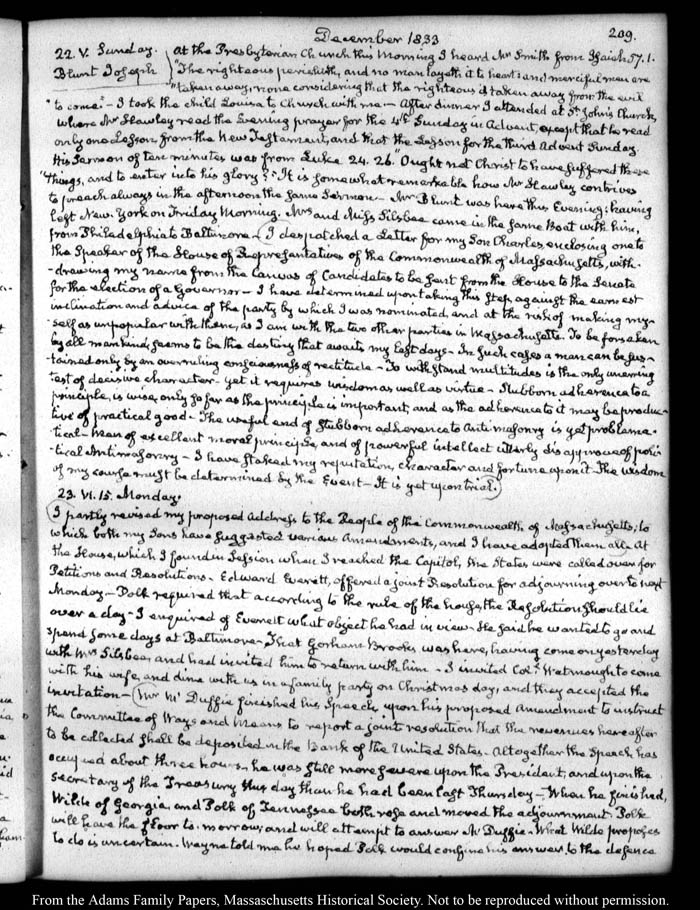 December 1833
209.
22. V. Sunday. At the Presbyterian Church this Morning I heard Mr Smith from Isaiah 57. 1.
Blunt Joseph "The righteous perisheth, and no man layeth it to heart: and merciful men are
"taken away, none considering that the righteous is taken away from the evil
"to come." - I took the child Louisa to Church with me. - After dinner I attended at St. John's Church,
where Mr Hawley read the Evening prayer for the 4th Sunday in Advent, except that he read
only one Lesson from the New Testament, and that the Lesson for the third Advent Sunday.
His Sermon of ten minutes was from Luke 24. 26. "Ought not Christ to have suffered these
"things, and to enter into his glory?" It is somewhat remarkable how Mr Hawley contrives
to preach always in the afternoon the same Sermon - Mr Blunt was here this Evening; having
left New-York on Friday Morning. Mrs and Miss Silsbee came in the same Boat with him,
from Philadelphia to Baltimore - I despatched a Letter for my Son Charles, enclosing one to
the Speaker of the House of Representatives of the Commonwealth of Massachusetts, with-
-drawing my name from the Canvas of Candidates to be sent from the House to the Senate
for the election of a Governor - I have determined upon taking this step, against the earnest
inclination and advice of the party by which I was nominated, and at the risk of making my-
self as unpopular with them, as I am with the two other parties in Massachusetts. To be forsaken
by all mankind, seems to be the destiny that awaits my last days - In such cases a man can be sus-
tained only by an overruling consciousness of rectitude - To withstand multitudes is the only unerring
test of decisive character - yet it requires wisdom as well as virtue - Stubborn adherence to a
principle, is wise, only so far as the principle is important, and as the adherence to it may be produc-
tive of practical good - The useful end of stubborn adherence to Antimasonry is yet problema-
tical - Men of excellent moral principle, and of powerful intellect utterly disapprove of poli-
-tical Antimasonry - I have staked my reputation, character and fortune upon it. The wisdom
of my course must be determined by the Event - It is yet upon trial.
23. VI. 15. Monday.
I partly revised my proposed Address to the People of the Commonwealth of Massachusetts; to
which both my Sons have suggested various Amendments, and I have adopted them all. At
the House, which I found in Session when I reached the Capitol, the States were called over for
Petitions and Resolutions - Edward Everett, offered a joint Resolution for adjourning over to next
Monday - Polk required that according to the rule of the house, the Resolution should lie
over a day - I enquired of Everett what object he had in view. He said he wanted to go and
spend some days at Baltimore - That Gorham Brooks was here, having come on yesterday
with Mrs Silsbee, and had invited him to return with him - I invited Coll. Watmough to come
with his wife, and dine with us in a family party on Christmas day, and they accepted the
invitation - Mr Mc Duffie finished his Speech, upon his proposed Amendment to instruct
the Committee of Ways and Means to report a joint resolution that the revenues hereafter
to be collected shall be deposited in the Bank of the United States - Altogether the Speech has
occupied about three hours - he was still more severe upon the President, and upon the
Secretary of the Treasury this day than he had been last Thursday - When he finished,
Wilde of Georgia, and Polk of Tennessee both rose and moved the adjournment. Polk
will have the floor to-morrow; and will attempt to answer Mc Duffie. What Wilde proposes
to do is uncertain. Wayne told me he hoped Polk would confine his answer, to the defence
From the Adams Family Papers, Massachusetts Historical Society. Not to be reproduced without permission.